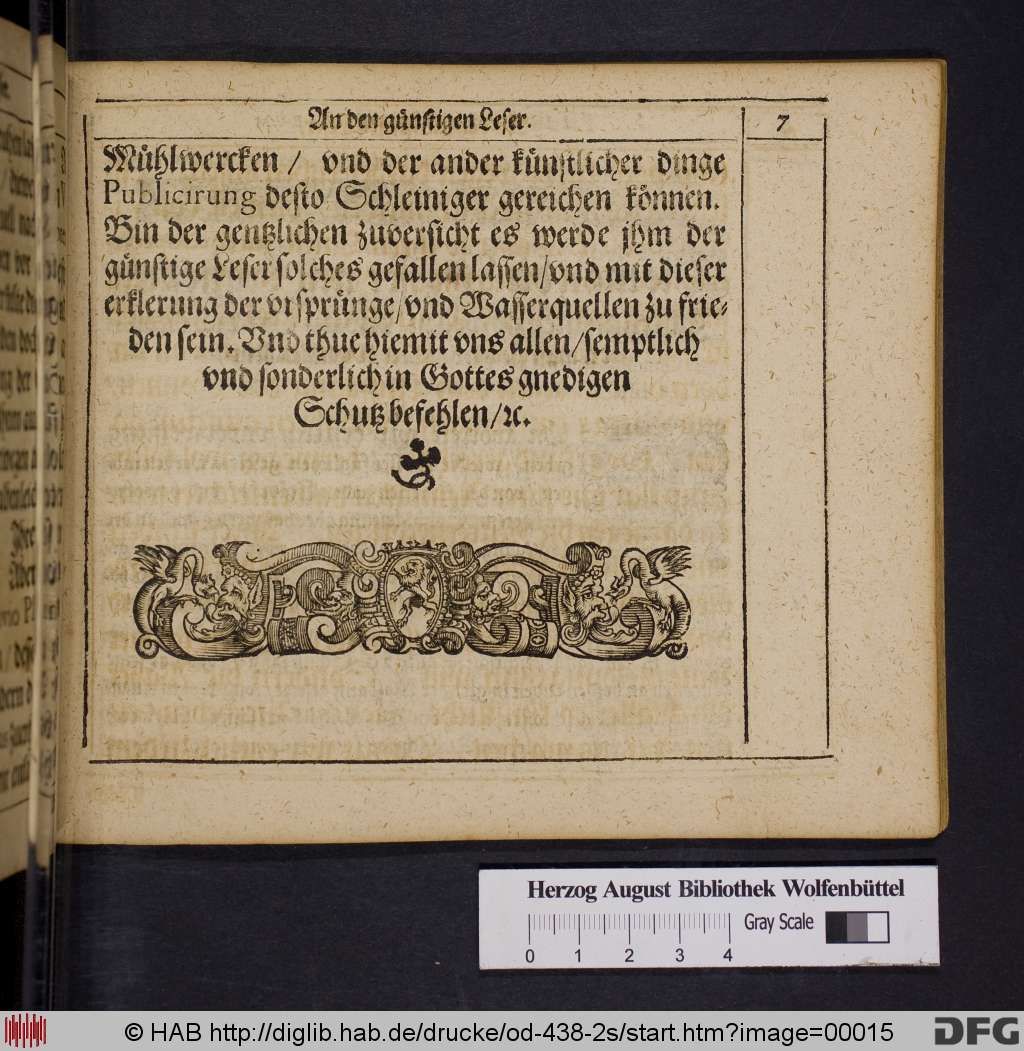 An den günstigen Leser.
7
Mühlwercken / vnd der ander künstlicher dinge
Publicirung desto Schleiniger gereichen können.
Bin der gentzlichen zuversicht es werde jhm der
günstige Leser solches gefallen lassen/vnd mit dieser
erklerung der vrsprünge/vnd Wasserquellen zu frie-
den sein. Vnd thue hiemit vns allen/semptlich
vnd sonderlich in Gottes gnedigen
Schutz befehlen/ꝛc.
Herzog August Bibliothek Wolfenbüttel
Gray Scale
0 1 2 3 4
© HAB http://diglib.hab.de/drucke/od-438-2s/start.htm?image=00015
DFG